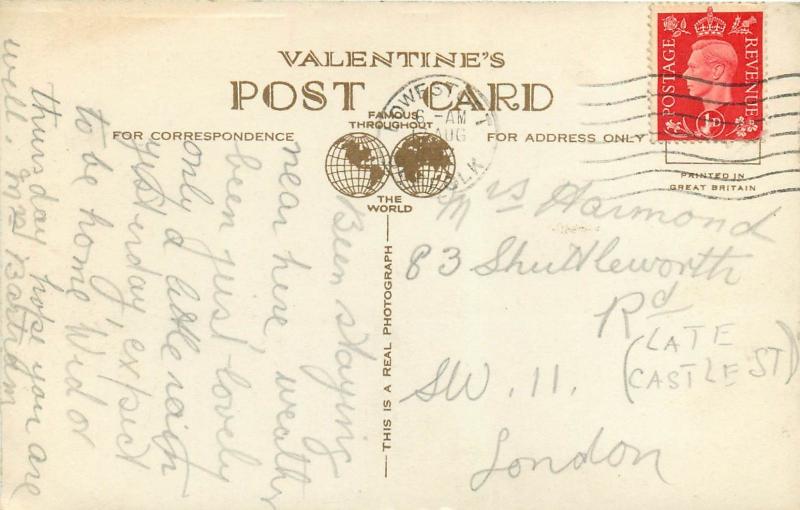 VALENTINE'S
POST CARD
FOR CORRESPONDENCE
FAMOUS
THROUGHOUT
THE
WORLD
FOR ADDRESS ONLY
POSTAGE REVENUE
1D
PRINTED IN
GREAT BRITAIN
6 - AM
AUG
THIS IS A REAL PHOTOGRAPH
Been staying
near here, weather
been just lovely
only a little rain
yesterday, expect
to be home Wed or
thursday, hope you are
well. Mrs Bartram
Mrs Harmond
83 Shuttleworth
Rd
(LATE
CASTLE ST)
SW. 11.
London